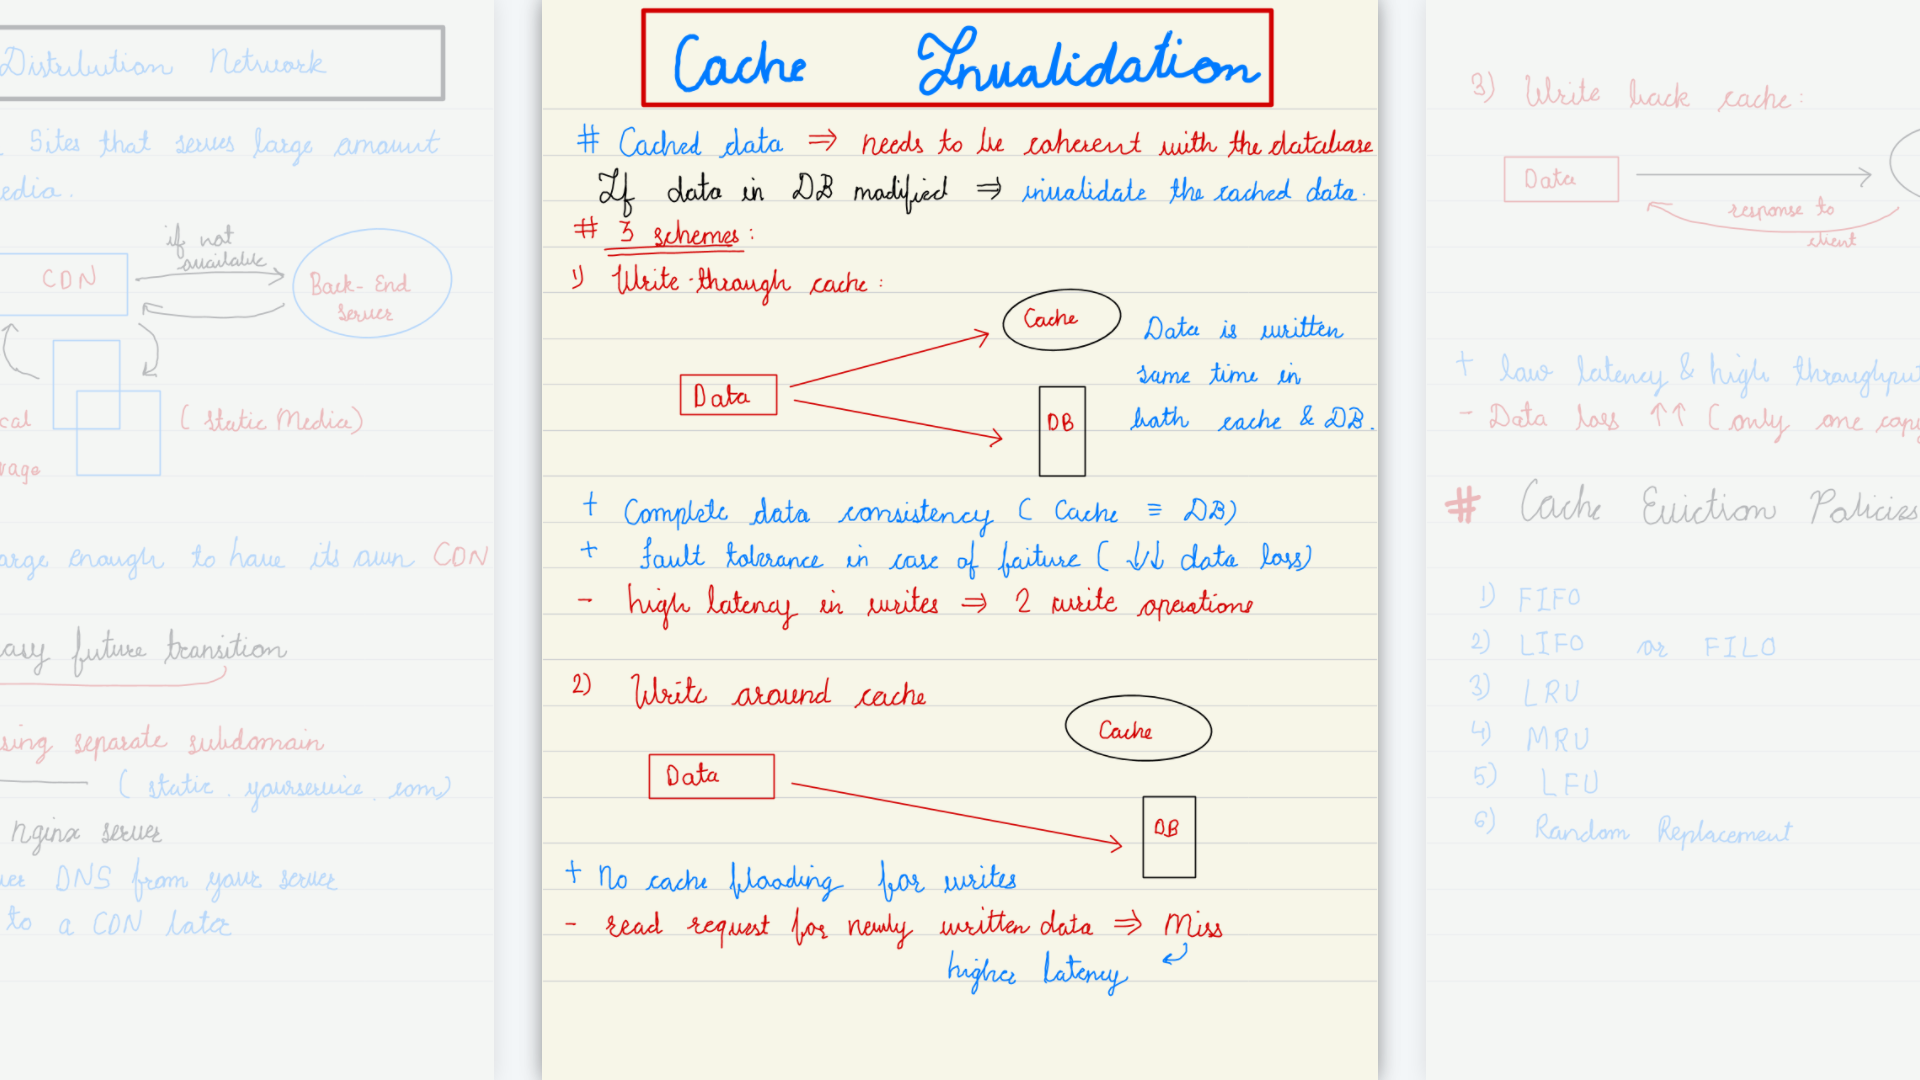 Distribution Network
Sites that serves large amount
edia.
CDN
if not
available
Back-End
Server
cal
rage
(static Media)
arge enough to have its own CDN
asy future transition
sing separate subdomain
(static.yourservice.com)
nginx server
ver DNS from your server
to a CDN later
Cache Invalidation
# Cached data ⇒ needs to be coherent with the database
If data in DB modified ⇒ invalidate the cached data.
# 3 schemes:
1) Write-through cache:
Data
Cache
DB
Data is written
same time in
both cache & DB.
+ Complete data consistency (Cache ≡ DB)
+ fault tolerance in case of faiture (↓↓ data loss)
- high latency in writes ⇒ 2 write operations
2) Write around cache
Cache
Data
DB
+ No cache flooding for writes
- read request for newly written data ⇒ Miss
higher latency
3) Write back cache:
Data
response to
client
+ low latency & high throughput
- Data loss ↑↑ (only one copy
# Cache Eviction Policies
1) FIFO
2) LIFO or FILO
3) LRU
4) MRU
5) LFU
6) Random Replacement